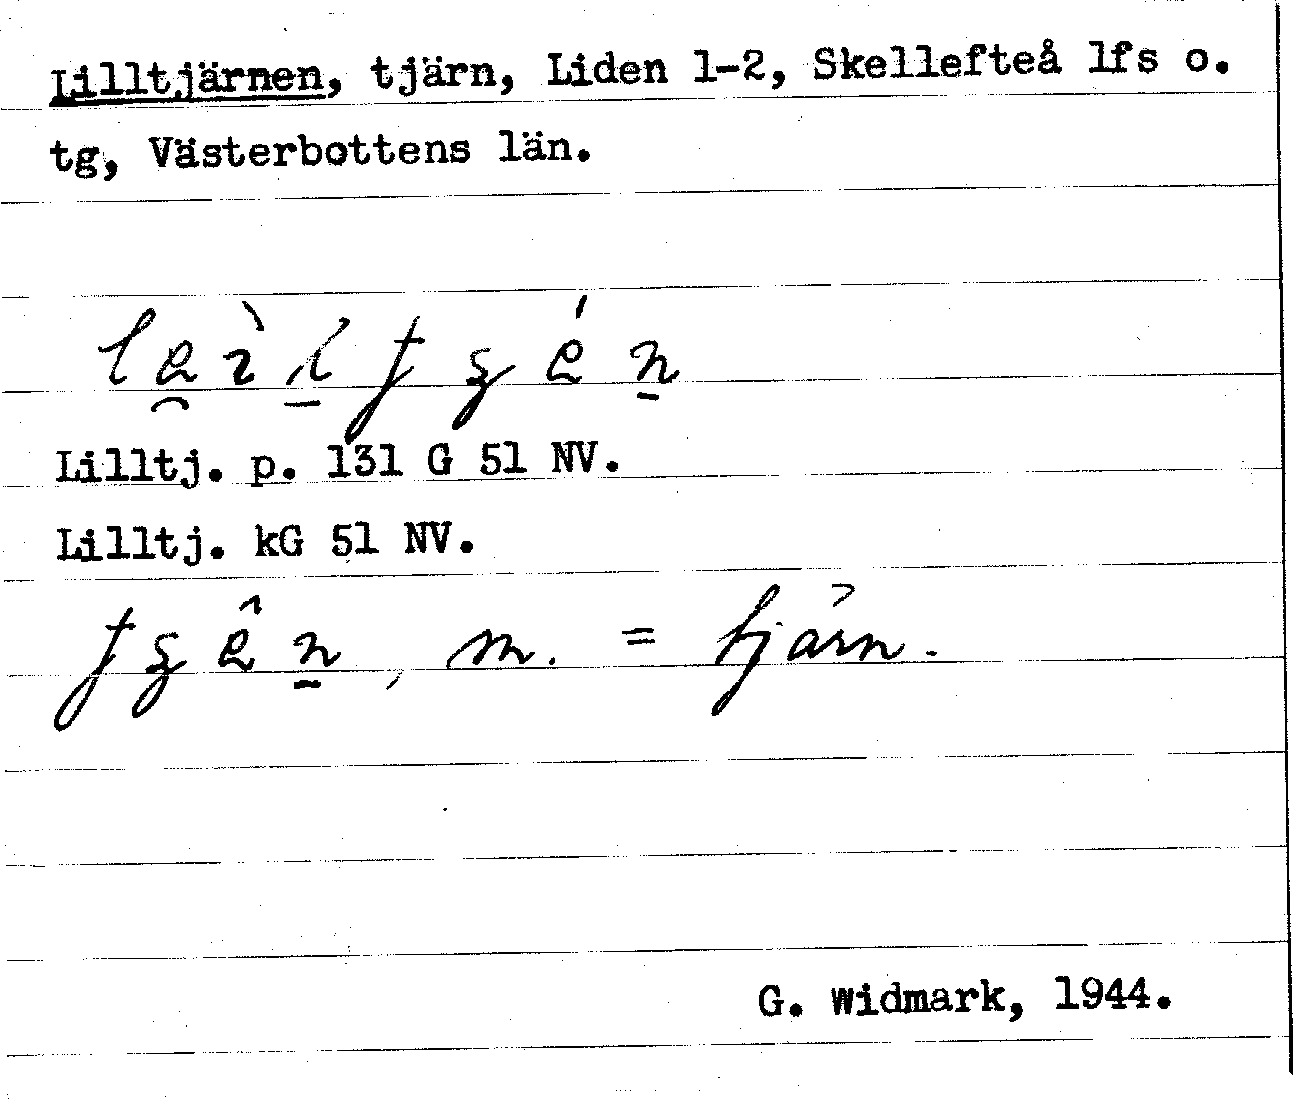 Lilltjärnen, tjärn, Liden 1-2, Skellefteå lfs o.
tg, Västerbottens län.
Lilltj. p. 131 G 51 NV.
Lilltj. kG 51 NV.
m. = tjärn.
G. Widmark, 1944.